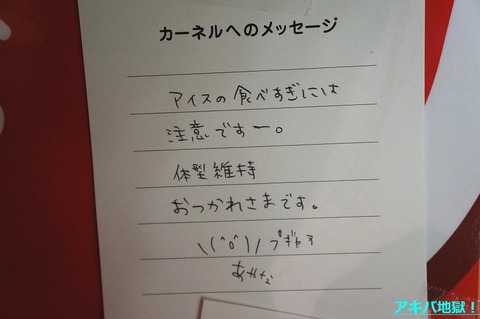 カーネルへのメッセージ
アイスの食べすぎには
注意ですー。
体型維持
おつかれさまです。
\(^o^)/ プギャア
あかな
アキバ地獄!